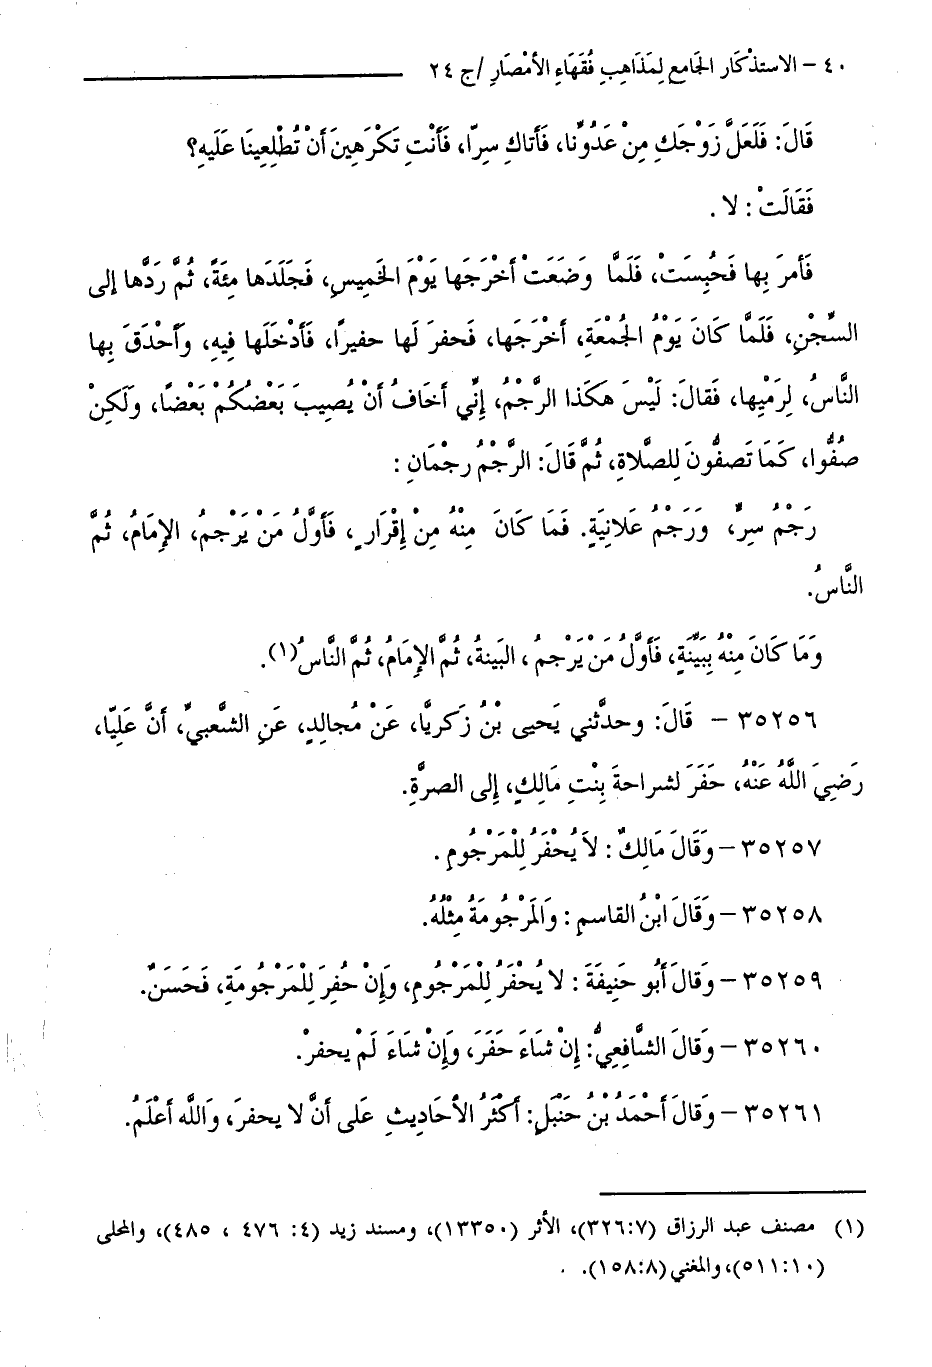 ٤٠ – الاستذْكَار الجَامع لِمَذَاهِبِ فُقَهَاءِ الأمْصَارِ /ج ٢٤
قَالَ: فَلَعَلَّ زَوْجَكِ مِنْ عَدُوِّنَا، فَأَتَاكِ سِرّا، فَأَنْتِ تَكْرَهِينَ أَنْ تُطْلِعِينَا عَلَيهِ؟
فَقَالَتْ : لا .
فَأمرَ بِها فَحُبِسَتْ، فَلَمَّا وَضَعَتْ أخْرَجَها يَوْمَ الخَميسِ، فَجَلَدَها مِئَةً، ثُمَّ رَدَّها إلى
السِّجْنِ، فَلَمَّا كَانَ يَوْمُ الجُمْعَةِ، أخْرَجَها، فَحفرَ لَها حفيرًا، فَأدْخَلَها فِيهِ، وَأحْدَقَ بِها
النَّاسُ، لِرَمْيِها، فَقالَ: لَيْسَ هكَذا الرَّجْمُ، إنِّي أخَافُ أنْ يُصِيبَ بَعْضُكُمْ بَعْضًا، وَلَكِنْ
صُفُّوا، كَمَا تَصفُّونَ لِلصَّلاةِ، ثُمَّ قَالَ: الرَّجْمُ رجْمَانِ :
رَجْمُ سِرٍّ، وَرَجْمُ عَلانِيَةٍ. فَمَا كَانَ مِنْهُ مِنْ إِقْرَارٍ، فَأَوَّلُ مَنْ يَرْجمُ، الإِمَامُ، ثُمَّ
النَّاسُ.
وَمَا كَانَ مِنْهُ بِبَيِّنَةٍ، فَأَوَّلُ مَنْ يَرْجمُ ، البَينةُ، ثُمَّ الإِمَامُ، ثُمَّ النَّاسُ(١).
٣٥٢٥٦ – قَالَ: وحدثَّني يَحيى بْنُ زَكريَّا، عَنْ مُجالِدٍ، عَنِ الشَّعبيِّ، أنَّ عَلِيّا،
رَضِيَ اللَّهُ عَنْهُ، حَفَرَ لشراحةَ بِنْتِ مَالِكٍ، إِلى الصرَّةِ.
٣٥٢٥٧ – وَقَالَ مَالِكٌ : لاَ يُحْفَرُ لِلْمَرْجُومِ .
٣٥٢٥٨ – وَقَالَ ابْنُ القاسمِ : وَالمَرْجُومَةُ مِثْلُهُ.
٣٥٢٥٩ – وَقالَ أَبُو حَنِيفَةَ : لا يُحْفَرُ لِلْمَرْجُومِ، وَإِنْ حُفِرَ لِلْمَرْجُومَةِ، فَحَسَنٌ.
٣٥٢٦٠ – وَقالَ الشَّافِعِيُّ: إِنْ شاءَ حَفَرَ، وَإِنْ شاءَ لَمْ يحفرْ.
٣٥٢٦١ – وَقالَ أَحْمَدُ بْنُ حَنْبَلٍ: أَكْثَرُ الأحَادِيثِ عَلى أنَّ لا يحفرَ، وَاللَّه أعْلَمُ.
(١) مصنف عبد الرزاق (٣٢٦:٧)، الأثر (١٣٣٥٠)، ومسند زيد (٤: ٤٧٦ ، ٤٨٥)، والمحلى
(٥١١:١٠)، والمغني (١٥٨:٨).